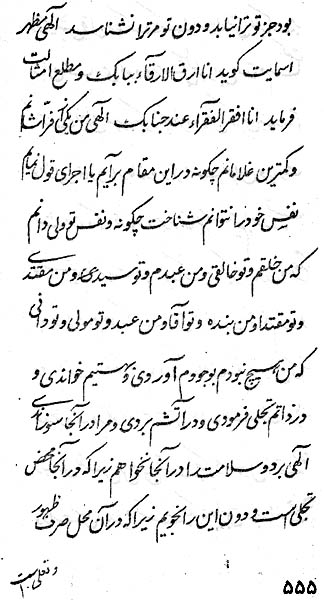 بود جز تو ترا نیابد و دون تو مر ترا نشناسد الهی مظهر
اسمایت کوید انا ارق الارقاء ببابک و مطلع امثالت
فرماید انا افقر الفقراء عند جنابک الهی من که
و کمترین غلامانم چکونه در این مقام برآیم یا اجرای قول نمایم
نفس خود را نتوانم شناخت چکونه و نفس تو ولی دانم
که من خلقم و تو خالقی و من عبدم و تو سیدی و من مقتدی
و تو مقتدا و من بنده و تو آقا و من عبد و تو مولی و تو دانی
که من هیچ نبودم بوجودم آوردی و نیستیم خواندی و
در ذاتم تجلی فرمودی و در آتشم بردی و مرا در آنجا سوزاندی
الهی برد و سلامت را در آنجا نخواهم زیرا که در آنجا محض
تجلی است و دون این را نجویم زیرا که در آن محل صرف ظهور
و تجلی است
۵۵۵